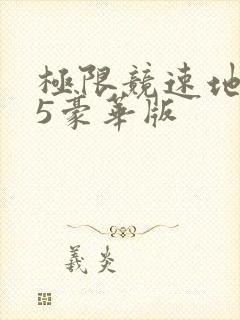 極限競速地
5豪華版
義炎